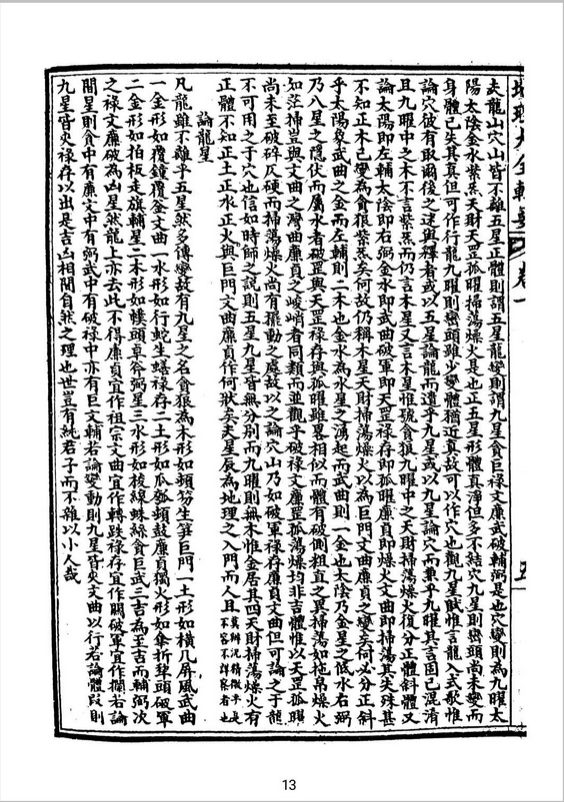 地理大全輯要 卷一 五
夫龍山穴山皆不離五星正體則謂五星龍變則謂九星貪巨祿文廉武破輔弼是也穴變則為九曜太
陽太陰金水紫炁天財天罡孤曜掃蕩燥火是也正五星形體真淨但多不結穴九星則巒頭尚未變而
身體已失其真但可作行龍九曜則巒頭雖少變體猶近真故可以作穴也觀星賦惟言龍入式歌惟
論穴彼有取爾後之述與釋者或以五星論龍而遺乎九星或以九星論穴而兼乎九曜其言固已混淆
且九曜中之木不言紫炁而仍言木星又言木星惟號貪狼九曜中之天財掃蕩燥火復分正體斜體又
論太陽即左輔太陰即右弼金水即武曲破軍即天罡祿存即孤曜廉貞即燥火文曲即掃蕩其失殊甚
不知正木已變為貪狼紫炁矣何故仍稱木星天財掃蕩燥火以為巨門文曲廉貞之變矣何必分正斜
乎太陽象武曲之金而左輔則二木也金水為水星之湧起而武曲則一金也太陰乃金星之低水右弼
乃八星之隱伏而屬水者破罡與天罡祿存與孤曜雖畧相似而體有破側粗直之異掃蕩如拖帛燥火
如茫掃豈與文曲之灣曲廉貞之峻峭者同類而並觀乎破祿文廉罡孤蕩燥均非吉體惟以天罡孤曜
尚未至破碎仄硬而掃蕩燥火尚有擺動之處故以之論穴山乃如破軍祿存廉貞文曲但可論之于龍
不可用之于穴也信如時師之說則五星九星皆無分別而九曜則無木惟金居其四天財掃蕩燥火有
正體不知正土正水正火與巨門文曲廉貞作何狀矣夫星辰為地理之入門而人且
論龍星
凡龍雖不離乎五星然多傳變故有九星之名貪狼為木形如頓笏生笋巨門一土形如橫几屏風武曲
一金形如覆鐘覆釜文曲一水形如行蛇生蟮祿存二土形如瓜瓠頓鼓廉貞獨火形如傘折犂頭破軍
二金形如拍板走旗輔星二木形如幞頭卓笏弼星三水形如梭線蛛絲貪巨武三吉為至吉而輔弼次
之祿文廉破為凶星然龍上亦去此不得廉貞宜作祖宗文曲宜作轉跌祿存宜作關破軍宜作攔若論
間星則貪中有廉文中有弼武中有破祿中亦有巨文輔若論變動則九星皆夾文曲以行若論體段則
九星皆夾祿存以出是吉凶相間自然之理也世豈有純君子而不雜以小人哉
13